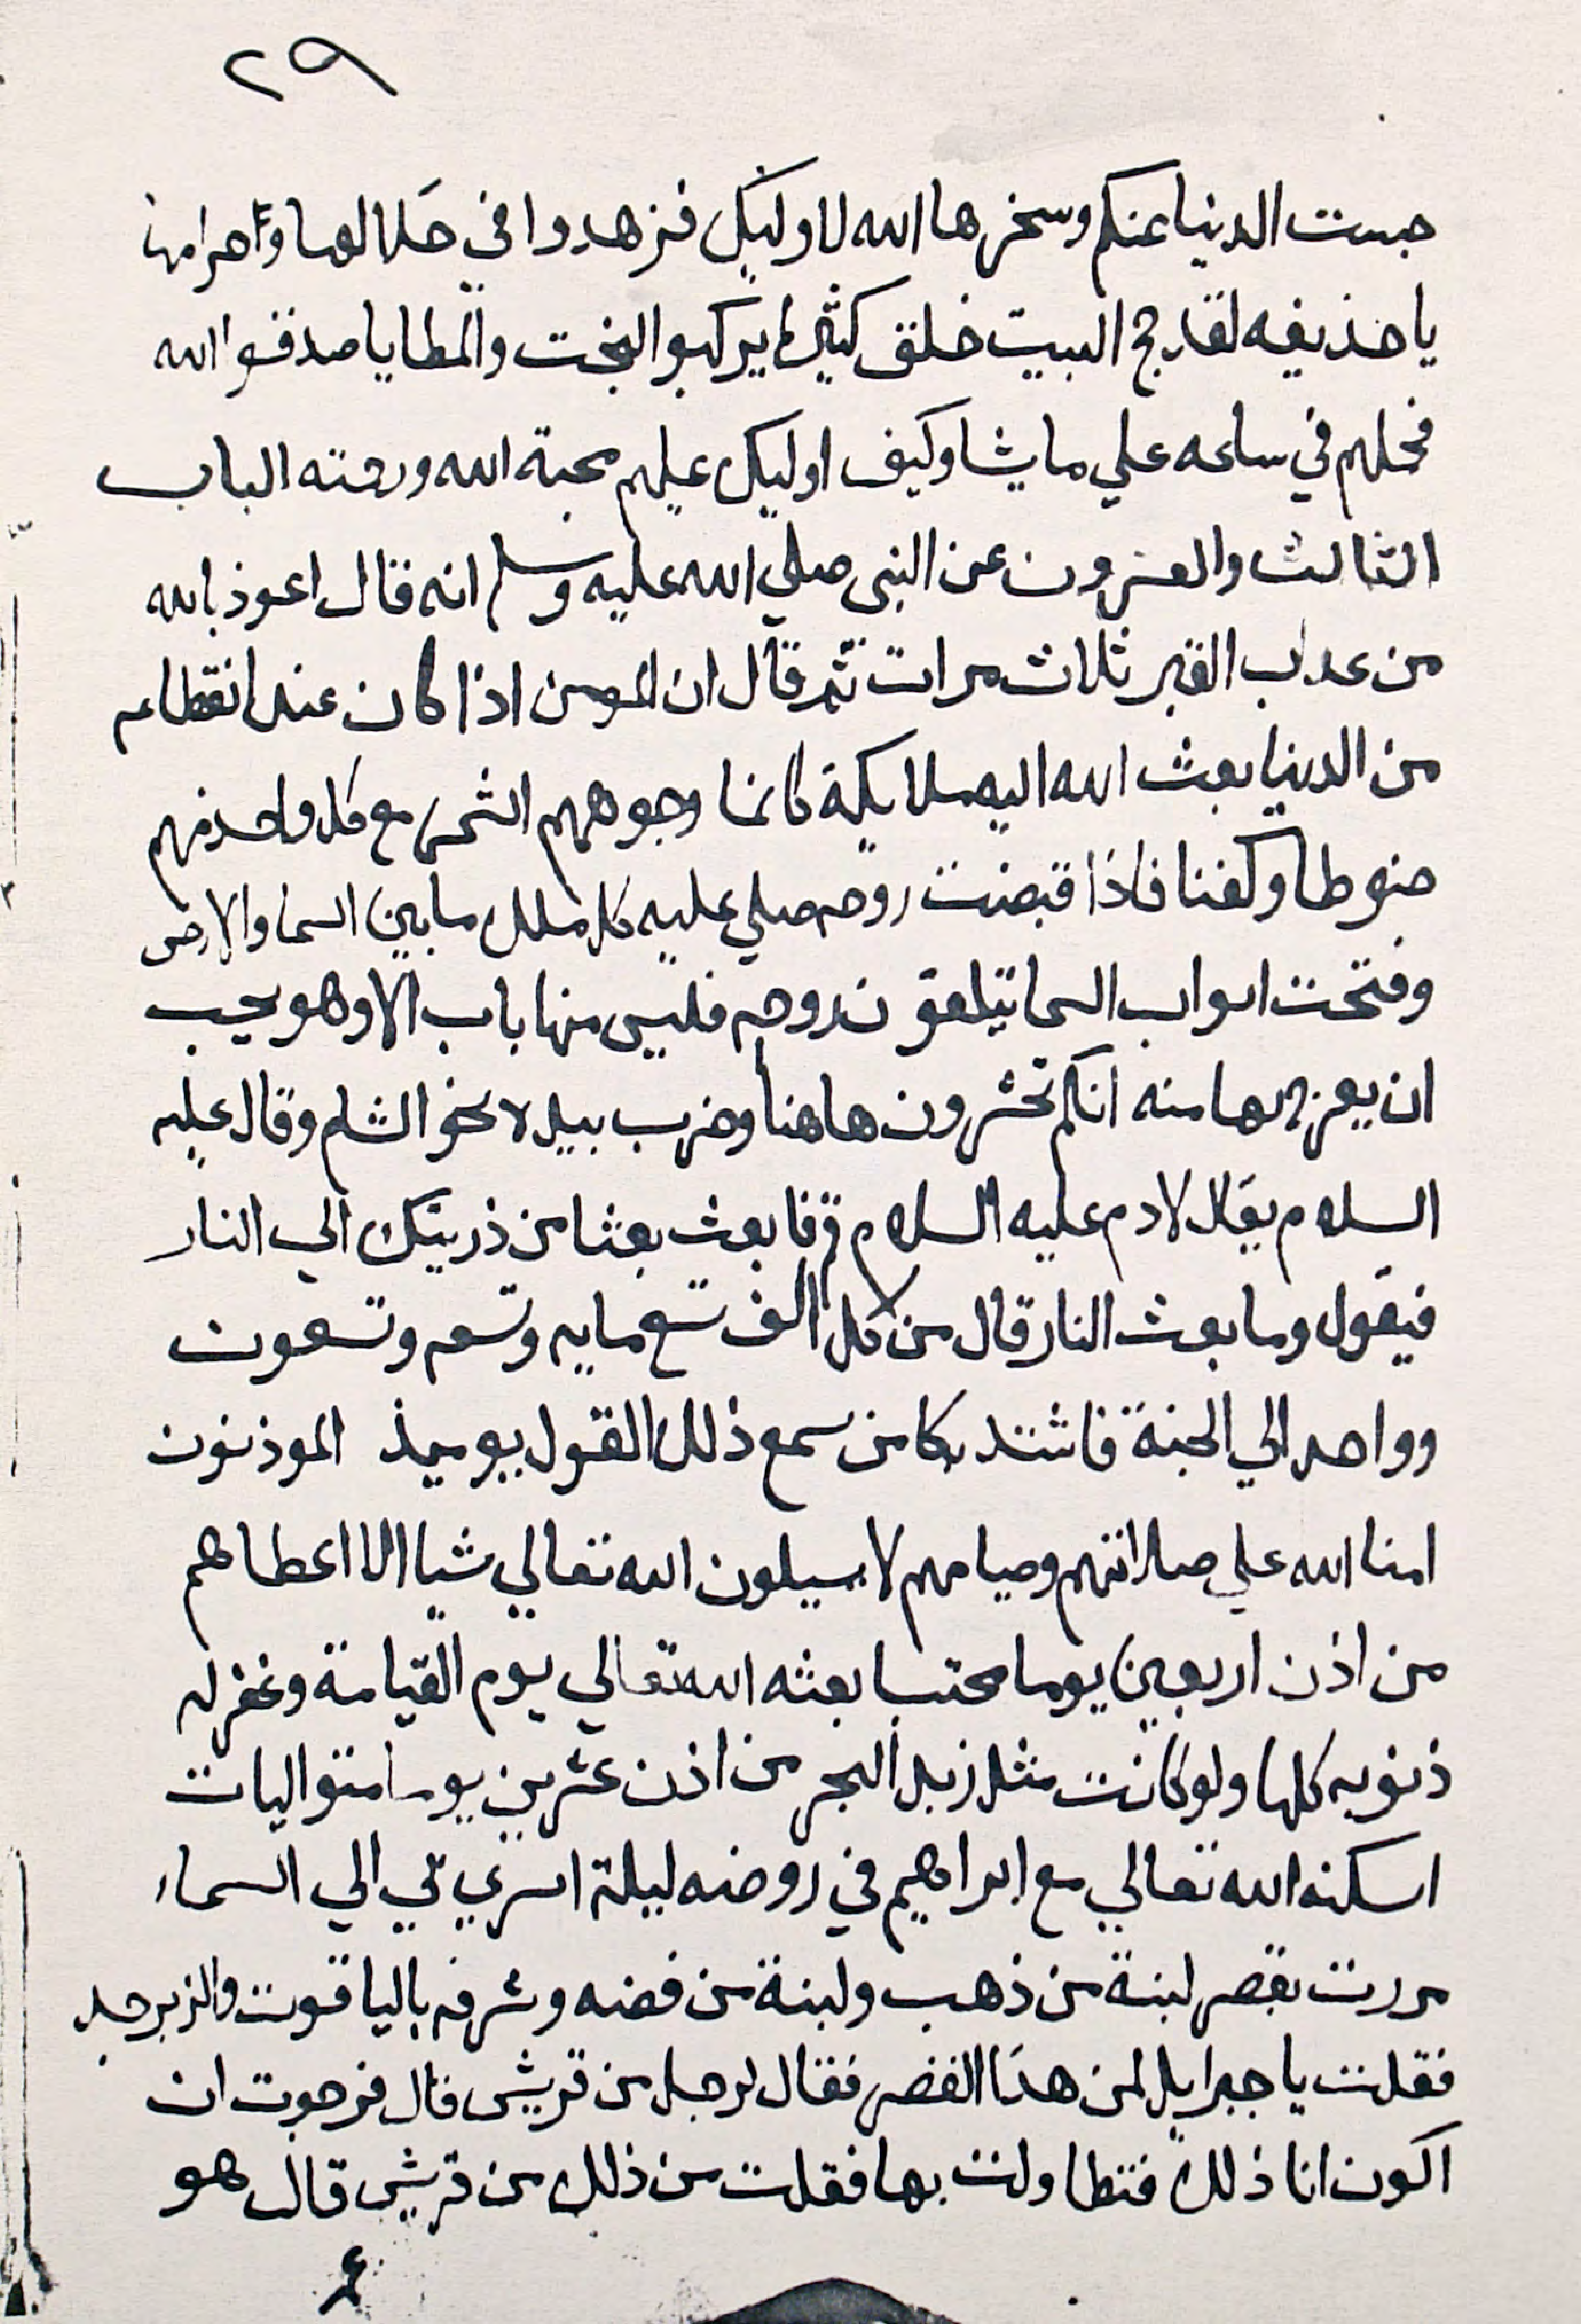 ٢٩
حبست الدنيا عنكم وسخرها الله لاوليك فزهدوا في حلالها وحرامها
يا حذيفه لقد حج البيت خلق كثير لم يركبوا البخت والمطايا صدقوا الله
فحملهم في ساعه علي ما يشا وكيف اوليك عليهم محبة الله ورحمته الباب
الثالث والعشرون عن النبى صلي الله عليه وسلم انه قال اعوذ بالله
من عداب القبر ثلاث مرات ثم قال ان المومن اذا كان عند انقطاعه
من الدنيا بعث الله اليه ملايكة كانما وجوههم الشمس مع كل واحد منهم
حنوطا وكفنا فاذا قبضت روحه صلي عليه كل ملك ما بين السما والارض
وفتحت ابواب السما يتلقون روحه فليس منها باب الا وهو يحب
ان يعرج بها منه انكم تحشرون هاهنا وضرب بيده نحو الشام وقال عليه
السلام يقال لادم عليه السلام قم فابعث بعثا من ذريتك الي النار
فيقول وما بعث النار قال من كل الف تسع مايه وتسعه وتسعون
وواحد الي الجنة فاشتد بكا من سمع ذلك القول يوميذ الموذنون
امنا الله علي صلاتهم وصيامهم لا يسيلون الله تعالي شيا الا اعطاهم
من اذن اربعين يوما محتسبا بعثه الله تعالي يوم القيامة وغفر له
ذنوبه كلها ولو كانت مثل زبد البحر من اذن عشرين يوما متواليات
اسكنه الله تعالي مع ابراهيم في روضه ليلة اسري بي الي السماء
مررت بقصر لبنة من ذهب ولبنة من فضه وشرفه بالياقوت والزبرجد
فقلت يا جبرايل لمن هدا القصر فقال لرجل من قريش قال فرجوت ان
اكون انا ذلك فتطاولت بها فقلت من ذلك من قريش قال هو